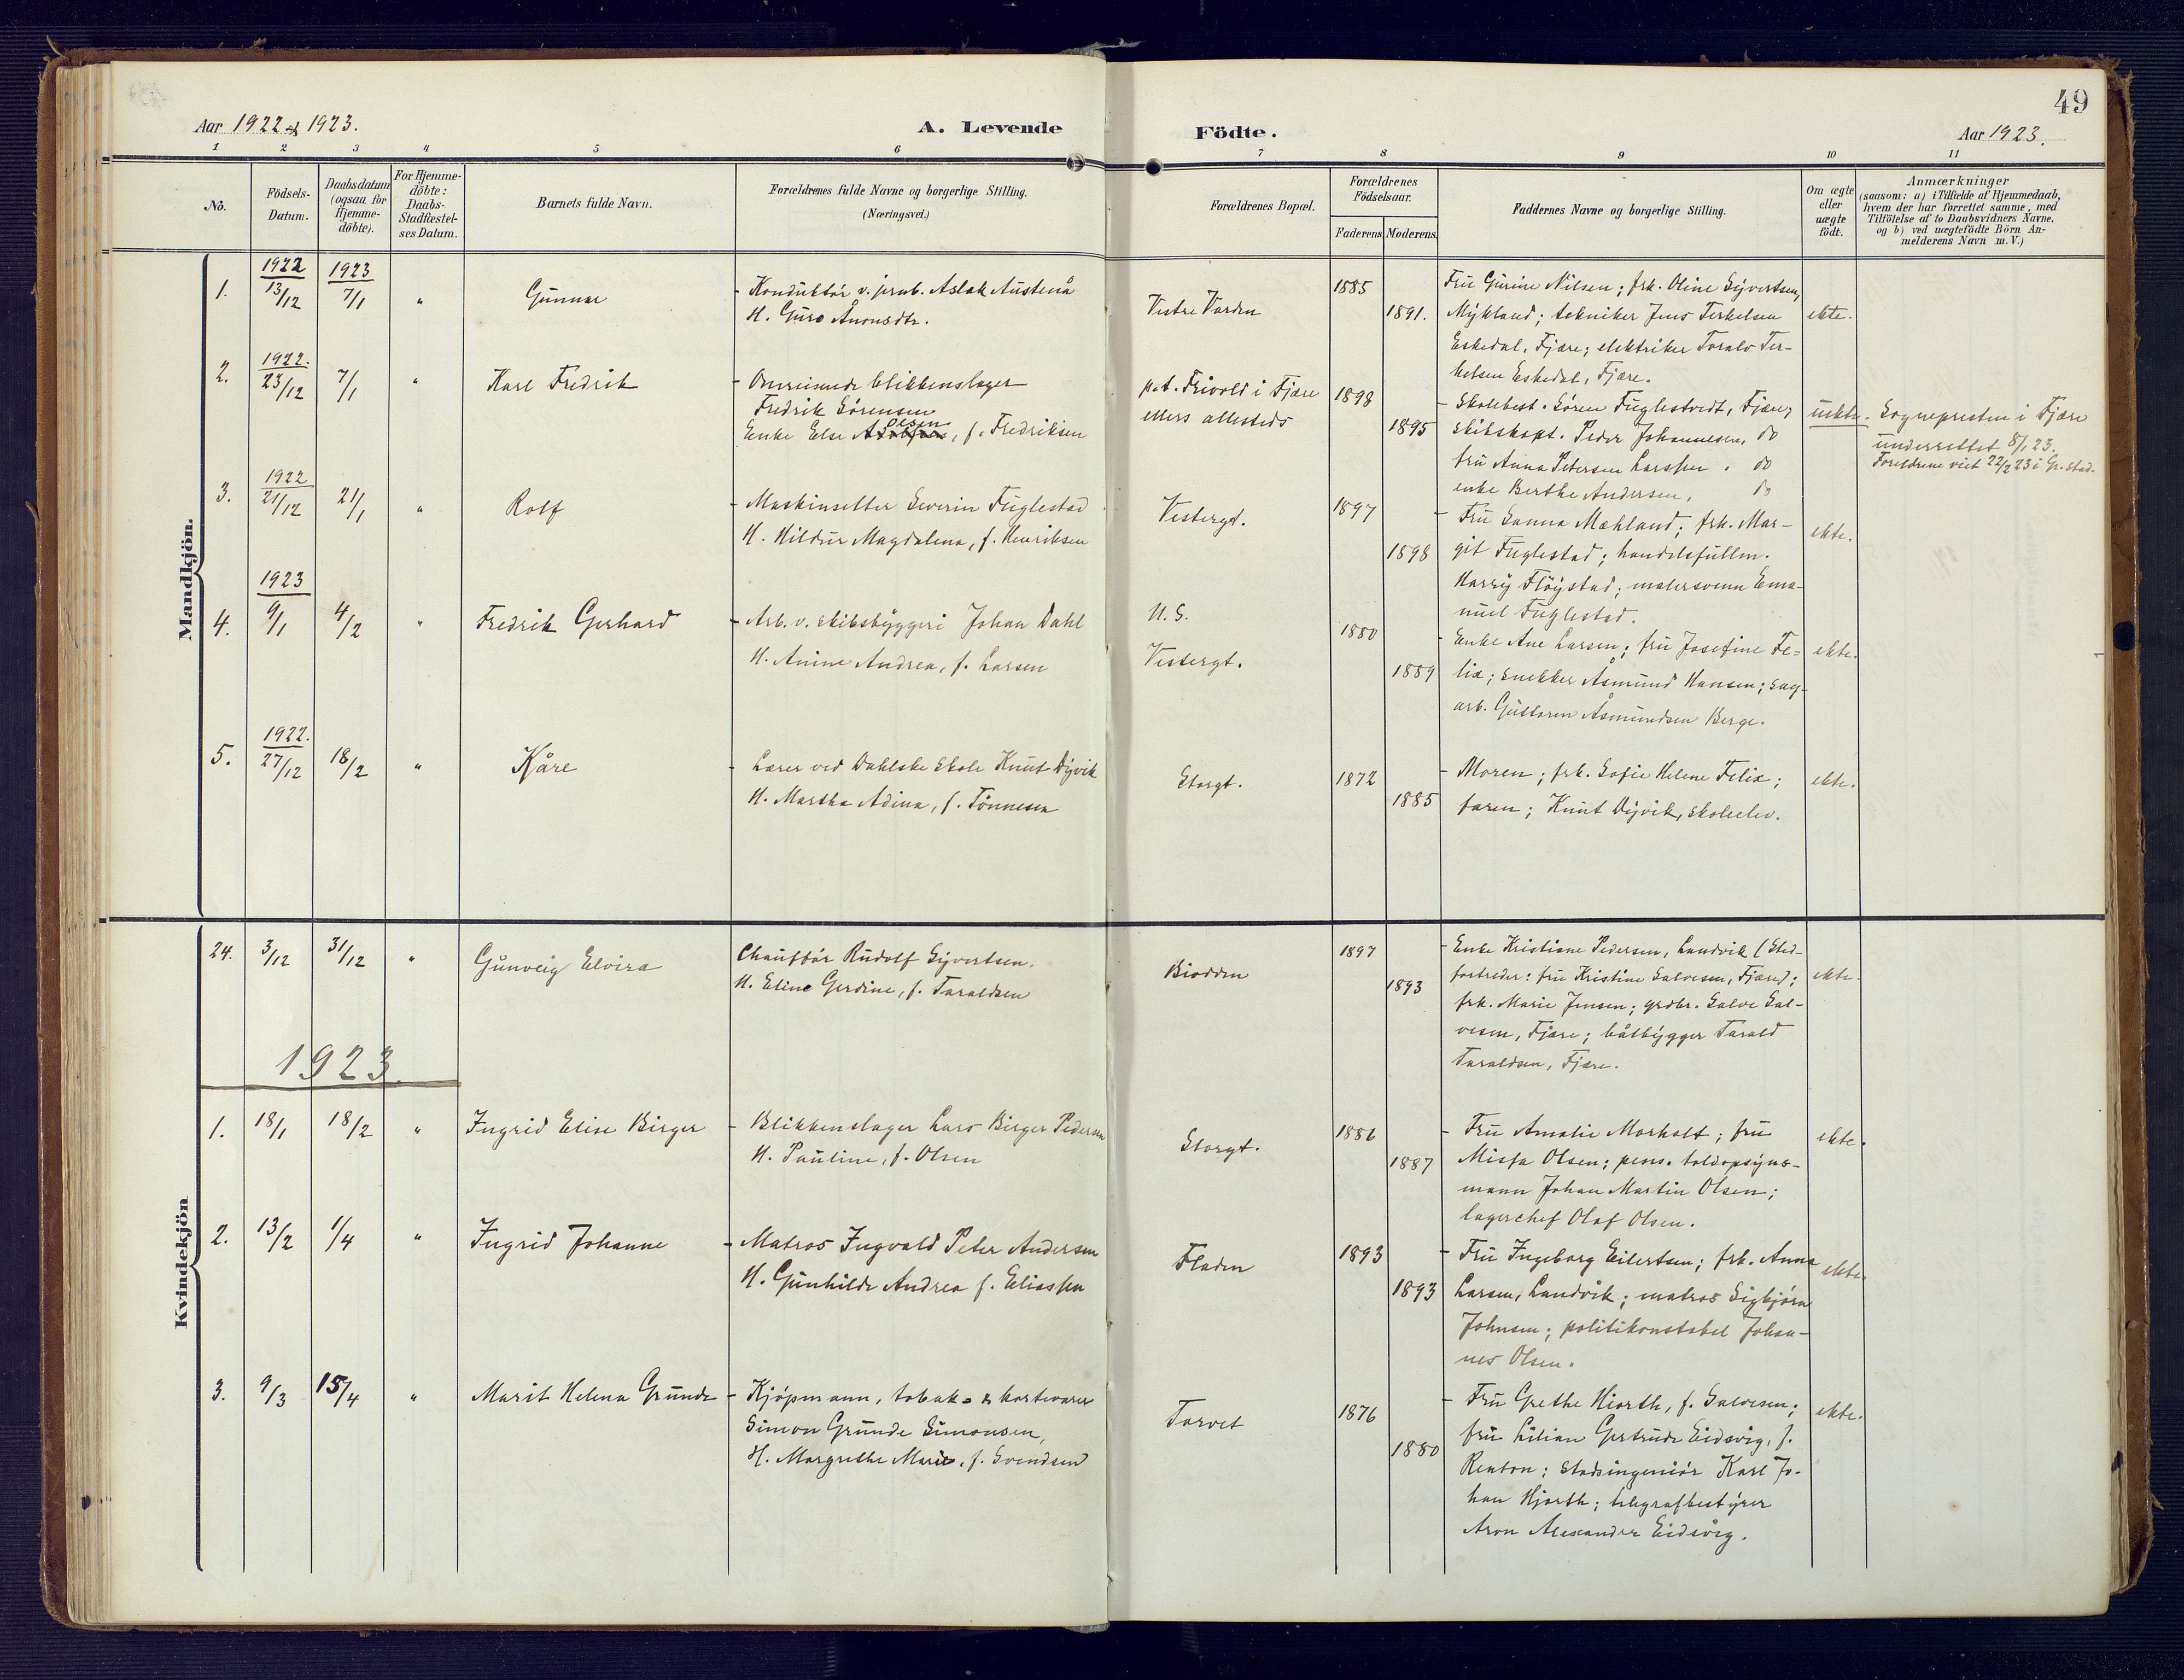 49
Aar 1922 og 1923.
A. Levende Födte.
Aar 1923.
1 2 3 4 5 6 7 8 9 10 11
No.
Födsels-Datum.
Daabsdatum (ogsaa for Hjemme-döbte).
For Hjemme-döbte: Daabs-Stadfæstel-ses Datum.
Barnets fulde Navn.
Forældrenes fulde Navne og borgerlige Stilling.
(Næringsvei.)
Forældrenes Bopæl.
Forældrenes Födselsaar.
Faderens. Moderens.
Faddernes Navne og borgerlige Stilling.
Om ægte eller uægte födt.
Anmærkninger
(saasom: a) i Tilfælde af Hjemmedaab,
hvem der har forrettet samme, med
Tilföielse af to Daabsvidners Navne,
og b) ved uægtefödte Börn An-
melderens Navn m. V.)
Mandkjön.
1. 1922 13/12 1923 7/1 " Gunnar
- Konduktør v. jernb. Aslak Austenå
H. Guro Ånonsdtr.
Vestre Varden
1885
1891.
Fru Gurine Nilsen; frk. Oline Syvertsen,
Mykland; tekniker Jens Terkelsen
Eskedal, Fjære; elektriker Toralv Ter-
kelsen Eskedal, Fjære.
ekte.
2. 1922. 23/12 7/1 " Karl Fredrik
- Omreisende blikkenslager
Fredrik Sørensen
Olsen
Enke Else, f. Fredriksen
p.t. Frivold i Fjære
ellers allesteds
1898
1895
- Skolebest. Søren Fuglestvedt, Fjære;
skibskapt. Peder Johannesen, do
fru Anna Petersen Larssen, do
enke Berthe Andersen, do
uekte.
Sognepresten i Fjære
underrettet 8/1 23.
Foreldrene viet 22/2 23 i Gr.stad.
3. 1922 21/12 21/1 " Rolf
- Maskinsetter Severin Fuglestad
H. Hildur Magdalena, f. Henriksen
Vestergt.
1897
1898
- Fru Sanna Mæhland; frk. Mar-
git Fuglestad; handelsfullm.
Harry Fløystad; malersvenn Ema-
nuel Fuglestad.
ekte.
4. 1923 9/1 4/2 " Fredrik Gerhard
- Arb. v. skibsbyggeri Johan Dahl
H. Anine Andrea, f. Larsen
Vestergt.
1880
1889
- Enke Ane Larsen; fru Josefine Fe-
lix; snekker Åsmund Hansen; sag-
arb. Guttorm Åsmundsen Berge.
ekte.
5. 1922. 27/12 18/2 " Kåre
- Lærer ved Dahlske skole Knut Dyvik
H. Martha Adina, f. Tønnesen
Storgt.
1872
1885
- Moren; frk. Sofie Helene Felix;
faren; Knut Dyvik, skoleelev.
ekte.
Kvindekjön
24. 3/12 31/12 " Gunveig Elvira
Chauffør Rudolf Syvertsen.
H. Eline Gerdine, f. Taraldsen
Biodden
1897
1893
- Enke Kristiane Pedersen, Landvik (Sted-
fortreder: fru Kristine Salvesen, Fjære);
frk. Marie Jensen; grdbr. Salve Sal-
vesen, Fjære; båtbygger Tarald
Taraldsen, Fjære.
ekte.
1923.
1. 18/1 18/2 " Ingrid Elise Birger
- Blikkenslager Lars Birger Pedersen
H. Pauline, f. Olsen
Storgt.
1886
1887
- Fru Amalie Morholt; fru
Missa Olsen; pens. toldopsyns-
mann Johan Martin Olsen;
lagerchef Olaf Olsen.
ekte.
2. 13/2 1/4 " Ingrid Johanne
- Matros Ingvald Peter Andersen
H. Gunhilde Andrea f. Eliassen
Fladen
1893
1893
- Fru Ingeborg Eilertsen; frk. Anna
Larsen, Landvik; matros Sigbjørn
Johnsen; politikonstabel Johan-
nes Olsen.
ekte.
3. 9/3 15/4 " Marit Helena Grunde
- Kjøpmann, tobak- & kortevarer
Simon Grunde Simonsen,
H. Margrethe Marie, f. Svendsen
Torvet
1876
1880
- Fru Grethe Hiorth, f. Salvesen;
fru Lilian Gertrude Eidsvig, f.
Renton; stadsingeniør Karl Jo-
han Hjorth; telegrafbestyrer
Aron Alexander Eidsvig.
ekte.